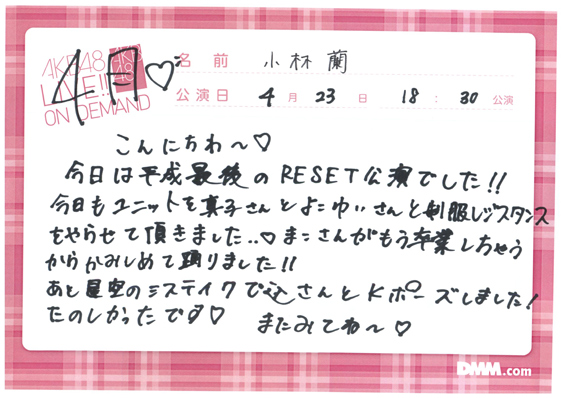 AKB48
LIVE!!
ON DEMAND
AKB48
4月♡
名前 小林蘭
公演日 4月23日 18:30公演
こんにちわ〜♡
今日は平成最後のRESET公演でした!!
今日もユニットを真子さんとよこゆいさんと制服レジスタンス
をやらせて頂きました..♡まこさんがもう卒業しちゃう
からかみしめて踊りました!!
あと星空のミステイクで込さんとKポーズしました!
たのしかったです♡ またみてね〜♡
DMM.com